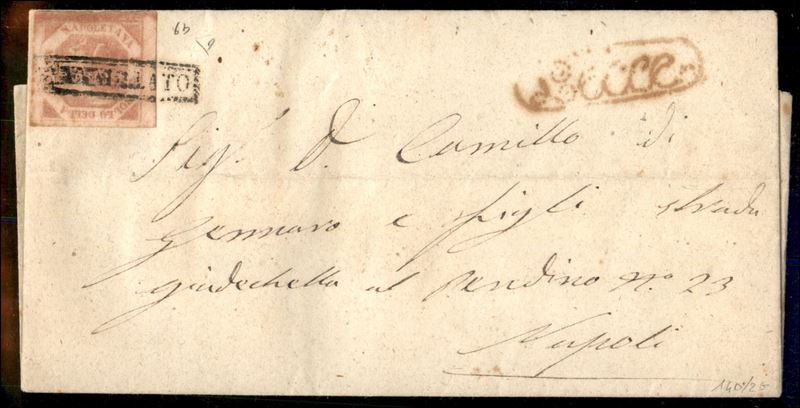 NAPOLETANA
ANNULLATO
Lecce
Sig. D. Camillo di
Gennaro e figli strada
giudechella al Pendino nº 23
Napoli